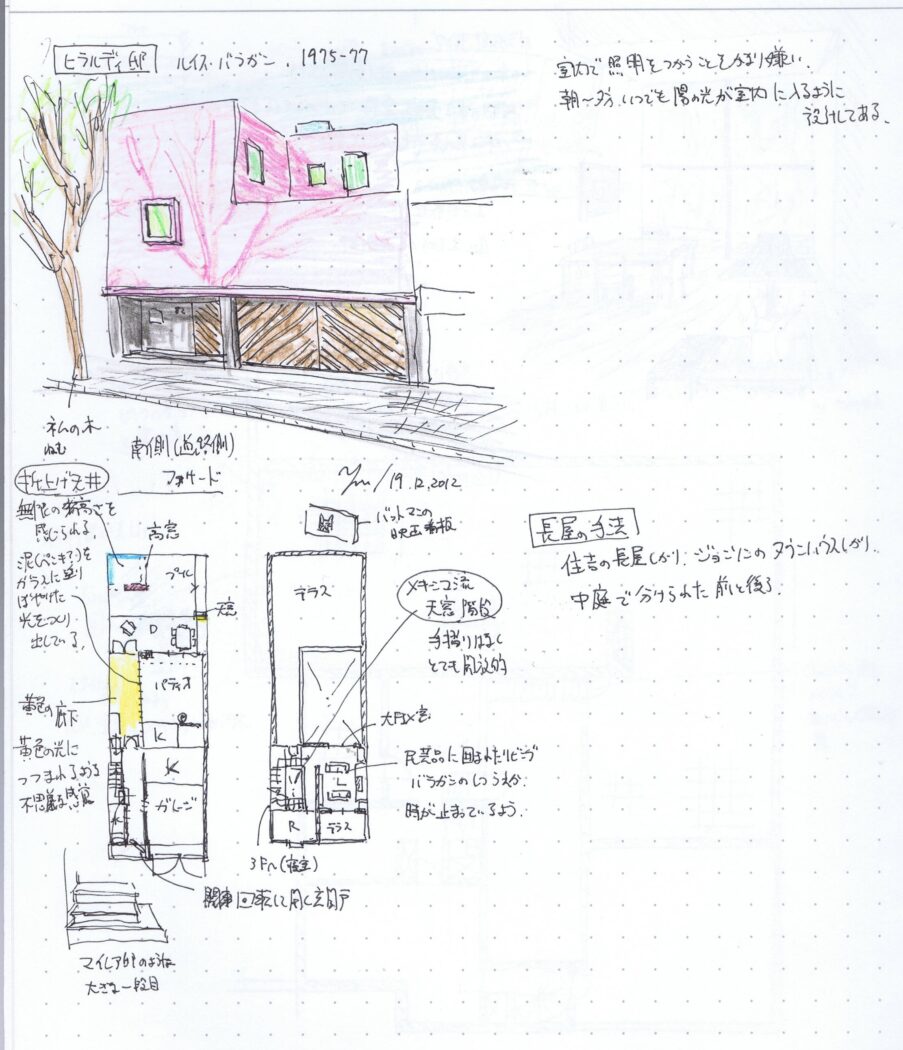 ヒラルディ邸 ルイス・バラガン. 1975-77
室内で照明をつかうことをかなり嫌い.
朝〜夕方 いつでも陽の光が室内に入るように
設計してある.
ねむの木
ねむ
南側(道路側)
ファサード
19.12.2012
バットマンの
映画看板
折上げ天井
無限の高さを
感じられる.
高窓
プール
窓
ガラスに塗り
ぼやけた
光をつくり
出している.
D
パティオ
黄色の廊下
K
黄色の光に
つつまれるような
不思議な感覚
ガレージ
テラス
メキシコ流
天窓 階段
手摺りはなく
とても開放的
大開口窓
民芸品に囲まれたリビング
バラガンのしつらえか.
時が止まっているよう.
L
R
テラス
3Fへ(寝室)
回転して開く玄関戸
マイレア邸のような
大きな一段目
長屋の手法
住吉の長屋しかり. ジョンソンのタウンハウスしかり.
中庭で分けられた前と後ろ.